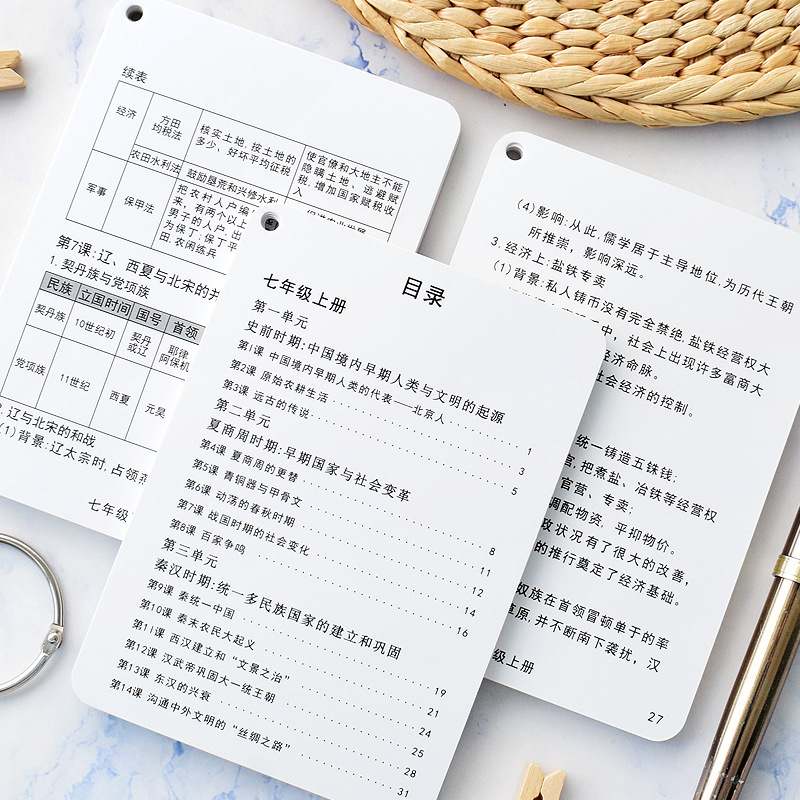 续表
经济
方田
均税法
核实土地,按土地的
多少、好坏平均征税
使官僚和大地主不能
隐瞒土地、逃避赋
税,增加国家赋税收
入
农田水利法
鼓励垦荒和兴修水利
军事
保甲法
把农村人户编
来,有两个以上
男子的人户,出
为保丁;保丁平
田,农闲练兵
第7课:辽、西夏与北宋的并
1. 契丹族与党项族
民族 立国时间 国号 首领
契丹族
10世纪初
契丹
或辽
耶律
阿保机
党项族
11世纪
西夏
元昊
辽与北宋的和战
(1)背景:辽太宗时,占领燕
七年级
目录
七年级上册
第一单元
史前时期:中国境内早期人类与文明的起源
第1课 中国境内早期人类的代表——北京人 1
第2课 原始农耕生活 3
第3课 远古的传说 5
第二单元
夏商周时期:早期国家与社会变革
第4课 夏商周的更替 8
第5课 青铜器与甲骨文 11
第6课 动荡的春秋时期 12
第7课 战国时期的社会变化 14
第8课 百家争鸣 16
第三单元
秦汉时期:统一多民族国家的建立和巩固
第9课 秦统一中国 19
第10课 秦末农民大起义 21
第11课 西汉建立和“文景之治” 24
第12课 汉武帝巩固大一统王朝 25
第13课 东汉的兴衰 28
第14课 沟通中外文明的“丝绸之路” 31
(4)影响:从此,儒学居于主导地位,为历代王朝
所推崇,影响深远。
3.经济上:盐铁专卖
(1)背景:私人铸币没有完全禁绝,盐铁经营权大
中,社会上出现许多富商大
经济命脉。
社会经济的控制。
统一铸造五铢钱;
官,把煮盐、冶铁等经营权
官营、专卖;
调配物资,平抑物价。
政状况有了很大的改善,
的推行奠定了经济基础。
奴族在首领冒顿单于的率
草原,并不断南下袭扰,汉
级上册
27